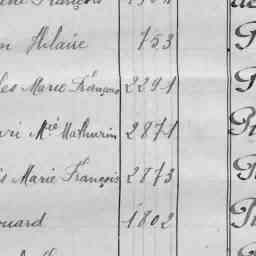 François
Hilaire 153
les Marie François 2291
ri Mie Mathurin 2871
is Marie François 2873
ouard 1802